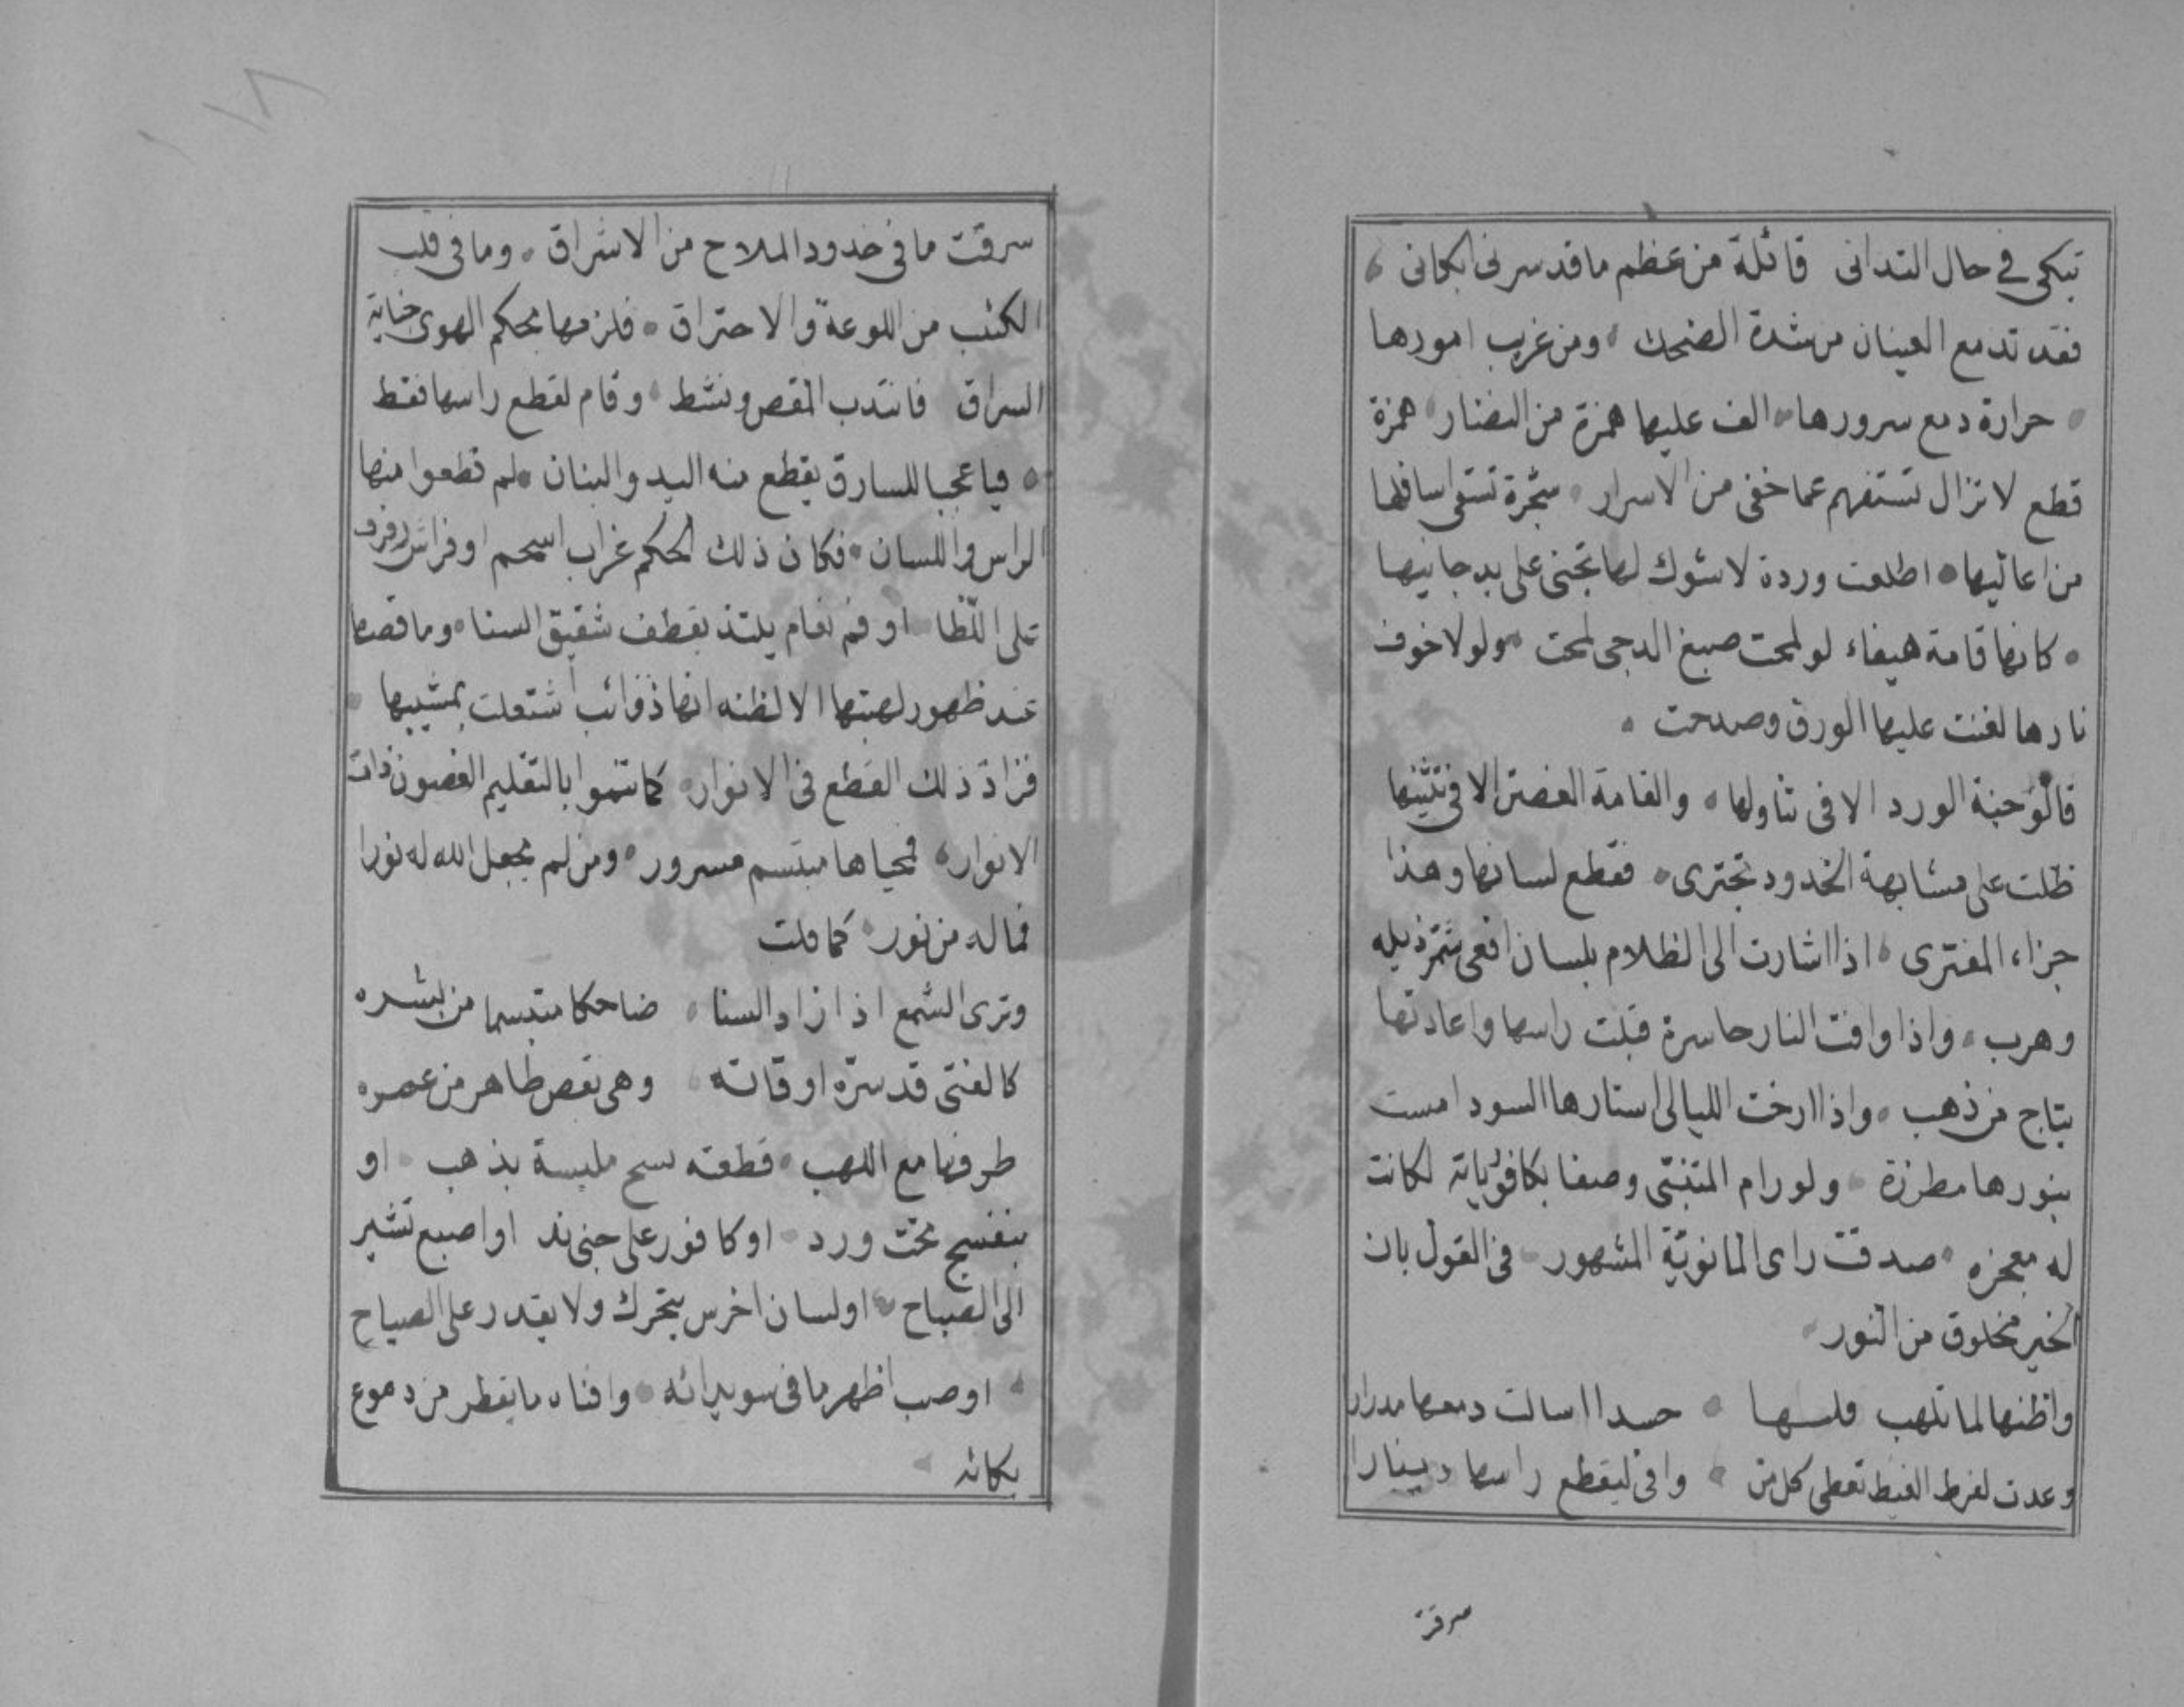 تبكى فى حال التدانى قائلة من عظم ما قد سرنى ابكانى
فقد تدمع العينان من شدة الضحك ومن غريب امورها
حرارة دمع سرورها الف عليها همزة من النضار همزة
قطع لا تزال تستفهم عما خفى من الاسرار شجرة تستقى اسافلها
من اعاليها اطلعت وردة لا شوك لها تجنى على يد جانيها
كانها قامة هيفاء لو لمحت صبغ الدجى لمحت ولولا خوف
نارها لغنت عليها الورق وصدحت
قالوا الورد الا فى تناولها والقامة الغصن الا فى تثنيها
ظلت على مشابهة الخدود تجترى فقطع لسانها وهذا
جزاء المفترى اذا اشارت الى الظلام بلسان افعى شمر ذيله
وهرب واذا وافت النار حاسرة قبلت راسها واعادتها
بتاج من ذهب واذا ارخت الليالى استارها السود امست
بنورها مطرزة ولو رام المتنبى وصفا بكافورياته لكانت
له معجزه صدقت راى المانوية المشهور فى القول بان
الخير مخلوق من النور
واظنها لما تلهب قلبها حسدا اسالت دمعها مدرارا
وغدت لفرط الغيظ تعطى كل من وافى ليقطع راسها دينارا
سرقت
سرقت ما فى خدود الملاح من الاشراق وما فى قلب
الكئب من اللوعة والاحتراق فلزمها بحكم الهوى جناية
السراق فانتدب المقص ونشط وقام لقطع راسها فقط
فيا عجبا للسارق يقطع منه اليد والبنان لم قطعوا منها
الراس واللسان فكان ذلك الحكم غراب اسحم او فراش رفرف
على اللظا او فم نعام يلتذ بقطف شقيق السنا وما قصها
عند ظهور لهبتها الا لظنه انها ذوائب اشتعلت بمشيبها
فزاد ذلك القطع فى الانوار كما تنموا بالتقليم الغصون ذات
الانوار فمحياها مبتسم مسرور ومن لم يجعل الله له نورا
فما له من نور كما قلت
وترى الشمع اذا زاد السنا ضاحكا مبتسما من بشره
كالفتى قد سره اوقاته وهى نقص ظاهر من عمره
طرفها مع اللهب قطعة ملبسة بذهب او
بنفسج تحت ورد او كافور على جنى ند او اصبع تشير
الى الصباح او لسان اخرس يتحرك ولا يقدر على الصياح
او صب اظهر ما فى سويدائه وافناه ما يقطر من دموع
بكائه